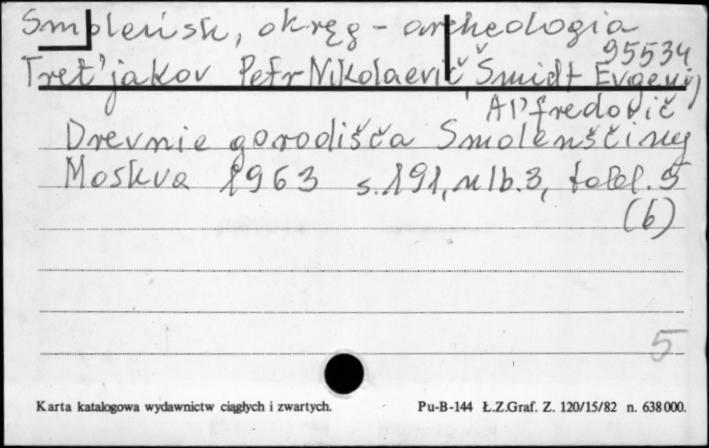 Smoleńsk, okręg - archeologia
95534
Tret'jakov Petr Nikolaevič, Šmidt Evgenij
Al'fredovič
Drevnie gorodišča Smolenščiny
Moskva 1963 s. 191, nlb. 3, tabl. 5
(b)
5
Karta katalogowa wydawnictw ciągłych i zwartych.
Pu-B-144 Ł.Z.Graf. Z. 120/15/82 n. 638000.